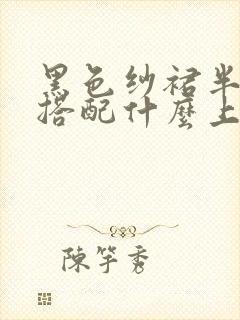 黑色纱裙半
搭配什麼上
陳竽秀